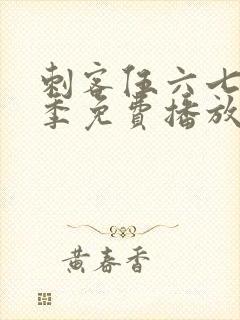 刺客伍六七
季免費播放
黄春香